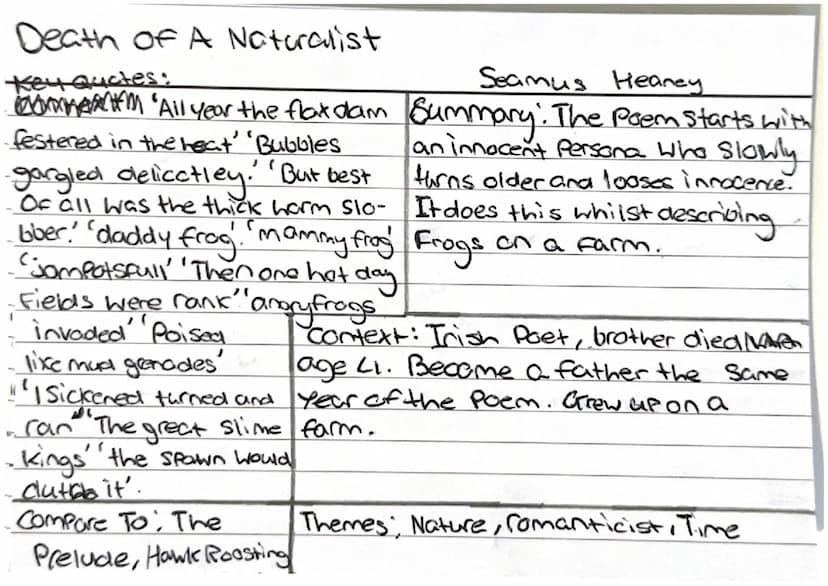 Death Of A Naturalist
Key Quotes:
Seamus Heaney
'All year the flax dam
festered in the heat' 'Bubbles
gargled delicctley.' 'But best
Of all was the thick warm slo-
bber.' 'daddy frog'. 'mammy frog'
'jampotsfull' 'Then one hot day
fields were rank' 'angry frogs
invaded' 'Poised
like mud grenades'
'I Sickened turned and
ran' 'The great slime
kings' 'the spawn would
clutch it'.
Summary: The Poem starts with
an innocent Persona who slowly
turns older and looses innocence.
It does this whilst describing
Frogs on a farm.
Context: Irish Poet, brother died
age 4. Become a father the same
year of the poem. Grew up on a
farm.
Compare To: The
Prelude, Hawk Roosting
Themes: Nature, romanticist, Time